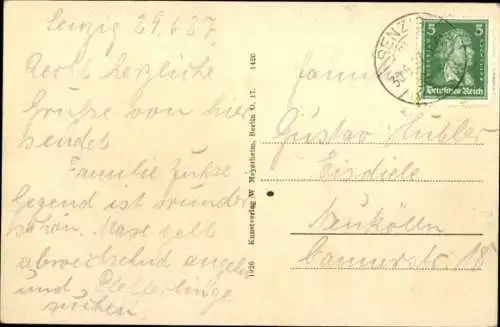 Senzig 29.6.27.
Recht herzliche
Grüße von hier
sendet
Familie
Gegend ist wunder
schön. Max geht
abwechselnd angeln
und Pfefferlinge
suchen
1926 Kunstverlag W. Meyerheim, Berlin O. 17. 1420
SENZIG
5 5
Deutsches Reich
Familie
Gustav Hübler
Eisdiele
Neukölln